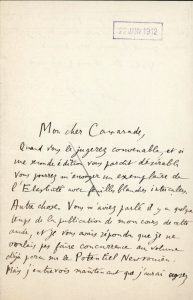 22 JUIN 1912
Mon cher Camarade,
Quand vous le jugerez convenable, et si
une seconde édition vous paraît désirable
vous pourrez m'envoyer un exemplaire de
l'Elasticité avec feuilles blanches intercalées.
Autre chose. Vous m'aviez parlé il y a quelque
temps de la publication de mon cours de cette
année, et je vous avais répondu que je ne
voulais pas faire concurrence au volume
déjà paru sur le Potentiel Newtonien.
Mais j'entrevois maintenant que j'aurai